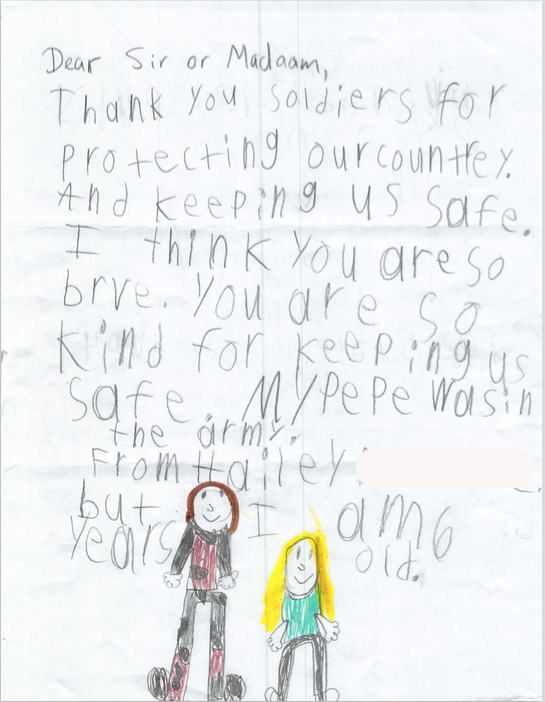 Dear Sir or Madaam,
Thank you soldiers for
protecting ourcountrey.
And keeping us safe.
I think you are so
brve. You are so
kind for keeping us
safe My Pepe Wasin
the army.
From Hailey
but I am 6
years old.